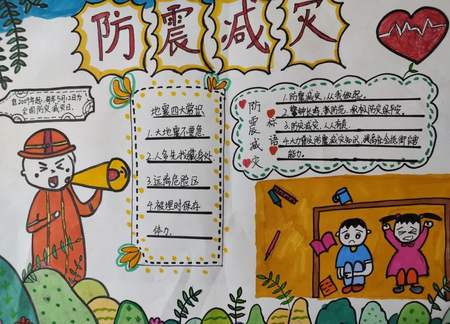 防震减灾
自2009年起,每年5月12日为
全国防灾减灾日。
地震四大常识
1.大地震不要慌
2.人多先找藏身处
3.远离危险区
4.被埋时保存
体力。
防震减灾
标语
1.防震减灾,从我做起。
3.防灾减灾,人人有责
4.大力普及防震减灾知识,提高社会抵御灾害
能力。